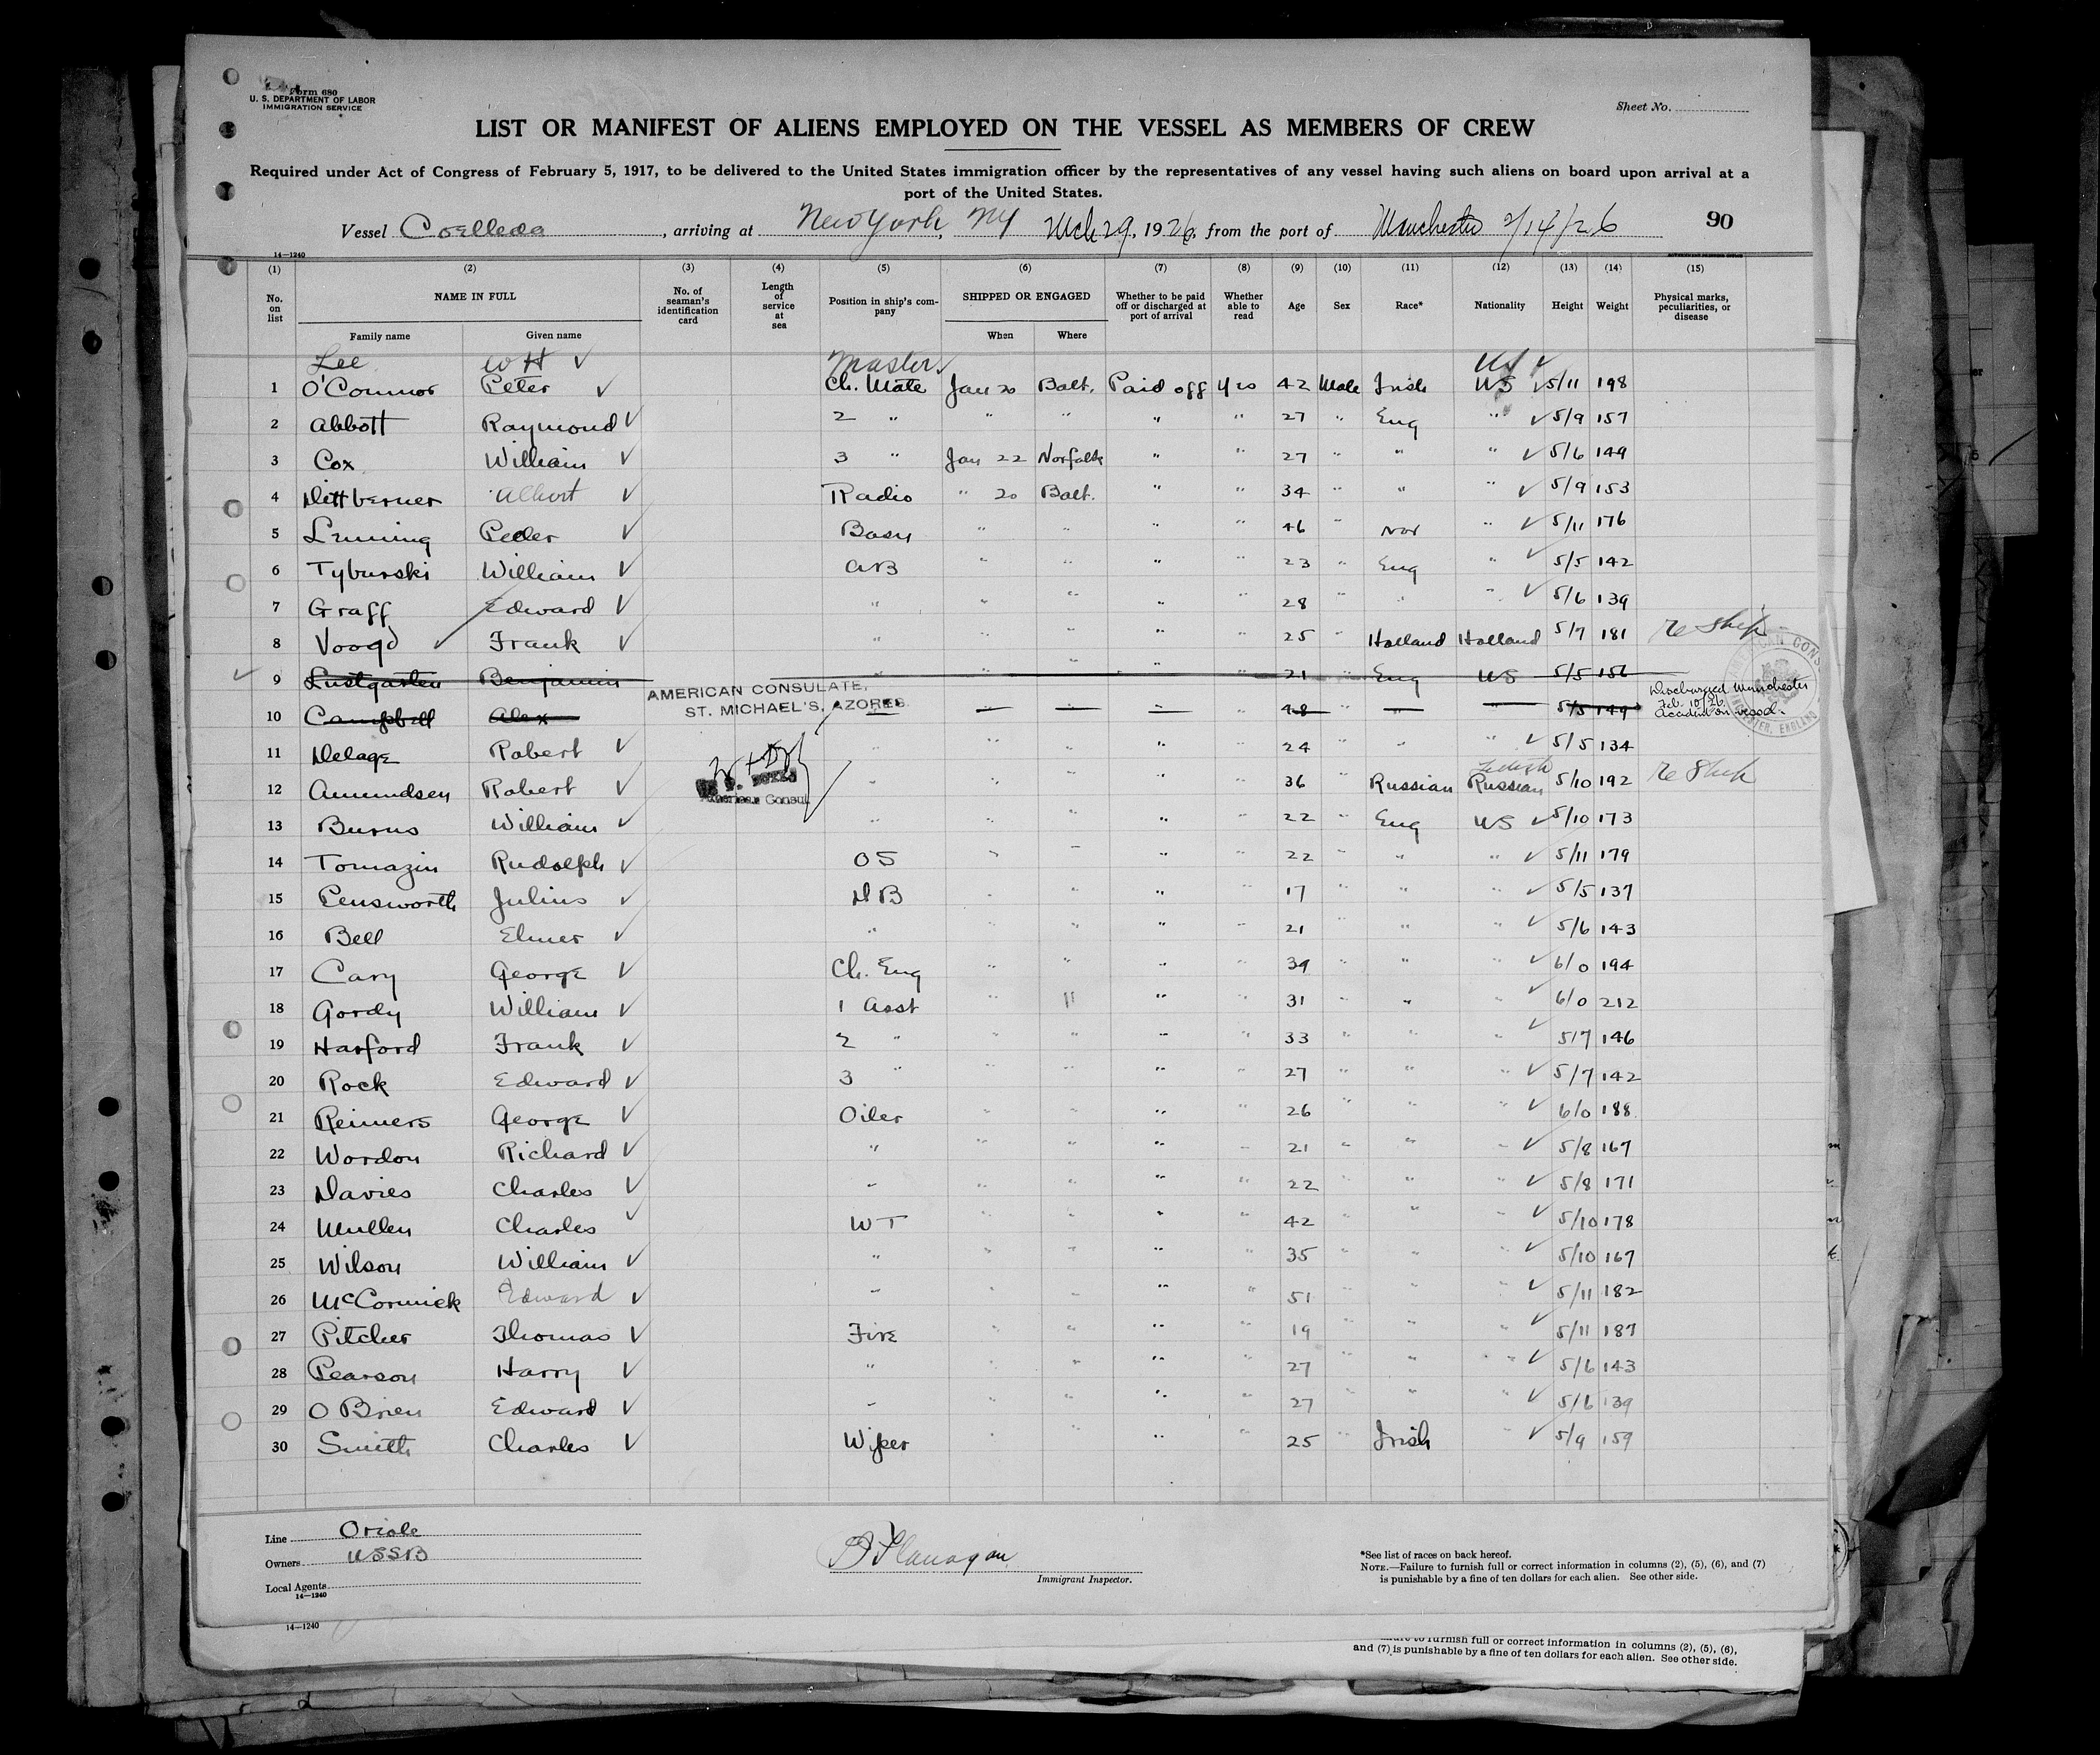 Form 680
U. S. DEPARTMENT OF LABOR
IMMIGRATION SERVICE
Sheet No.
LIST OR MANIFEST OF ALIENS EMPLOYED ON THE VESSEL AS MEMBERS OF CREW
Required under Act of Congress of February 5, 1917, to be delivered to the United States immigration officer by the representatives of any vessel having such aliens on board upon arrival at a
port of the United States.
Vessel Coelleda, arriving at New York, NY Mch 29, 1926, from the port of Manchester 2/14/26 90
14—1240
(1) (2) (3) (4) (5) (6) (7) (8) (9) (10) (11) (12) (13) (14) (15)
No. on list NAME IN FULL No. of seaman's identification card Length of service at sea Position in ship's company SHIPPED OR ENGAGED Whether to be paid off or discharged at port of arrival Whether able to read Age Sex Race* Nationality Height Weight Physical marks, peculiarities, or disease
Family name Given name When Where
Lee W H ✓ Master ✓ US ✓
1 O'Connor Peter ✓ Ch. Mate Jan 20 Balt. Paid off yes 42 Male Irish US ✓ 5/11 198
2 Abbott Raymond ✓ 2 " " " " " 27 " Eng " ✓ 5/9 157
3 Cox William ✓ 3 " Jan 22 Norfolk " " 27 " " " ✓ 5/6 149
4 Dittberner Albert ✓ Radio " 20 Balt. " " 34 " " " ✓ 5/9 153
5 Lenning Peder ✓ Bosn " " " " 46 " Nor " ✓ 5/11 176
6 Tyburski William ✓ AB " " " " 23 " Eng " ✓ 5/5 142
7 Graff Edward ✓ " " " " " 28 " " " ✓ 5/6 139
8 Voogd ✓ Frank ✓ " " " " " 25 " Holland Holland 5/7 181 Re Ship
✓ 9 Lustgarten Benjamin " " " " " 21 " Eng US 5/5 156
AMERICAN CONSULATE,
ST. MICHAEL'S, AZORES.
Discharged Manchester
Feb. 10/26
Accident on vessel.
10 Campbell Alex 48 " 5/5 149
11 Delage Robert ✓ " " " " " 24 " " " ✓ 5/5 134
American Consul
12 Amundsen Robert ✓ " " " " " 36 " Russian Russian 5/10 192 Re Ship
13 Burns William ✓ " " " " " 22 " Eng US ✓ 5/10 173
14 Tomazin Rudolph ✓ OS " " " " 22 " " " ✓ 5/11 179
15 Pensworth Julius ✓ DB " " " " 17 " " ✓ 5/5 137
16 Bell Elmer ✓ " " " " " 21 " " " ✓ 5/6 143
17 Cary George ✓ Ch. Eng " " " " 39 " " " ✓ 6/0 194
18 Gordy William ✓ 1 Asst " " " " 31 " " " ✓ 6/0 212
19 Harford Frank ✓ 2 " " " " " 33 " " " ✓ 5/7 146
20 Rock Edward ✓ 3 " " " " " 27 " " " ✓ 5/7 142
21 Reimers George ✓ Oiler " " " " 26 " " " ✓ 6/0 188
22 Wordon Richard ✓ " " " " " 21 " " " ✓ 5/8 167
23 Davies Charles ✓ " " " " " 22 " " " ✓ 5/8 171
24 Mullen Charles ✓ WT " " " " 42 " " " ✓ 5/10 178
25 Wilson William ✓ " " " " " 35 " " " ✓ 5/10 167
26 McCormick Edward ✓ " " " " " 51 " " " ✓ 5/11 182
27 Pitcher Thomas ✓ Fire " " " " 19 " " " ✓ 5/11 187
28 Pearson Harry ✓ " " " " " 27 " " " ✓ 5/6 143
29 O Brien Edward ✓ " " " " " 27 " " " ✓ 5/6 139
30 Smith Charles ✓ Wiper " " " " 25 " Irish " ✓ 5/9 159
Line Oriole
Owners USSB
Local Agents
14—1240
Flanagan
Immigrant Inspector.
*See list of races on back hereof.
NOTE.—Failure to furnish full or correct information in columns (2), (5), (6), and (7)
is punishable by a fine of ten dollars for each alien. See other side.
14—1240
to furnish full or correct information in columns (2), (5), (6),
and (7) is punishable by a fine of ten dollars for each alien. See other side.